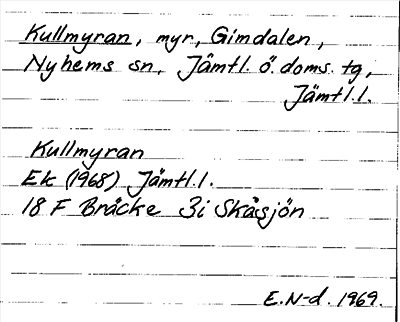 Kullmyran, myr, Gimdalen,
Nyhems sn, Jämtl. ö. doms. tg,
Jämtl.l.
Kullmyran
Ek (1968) Jämtl.l.
18 F Bräcke 3i Skåsjön
E.N-d. 1969.